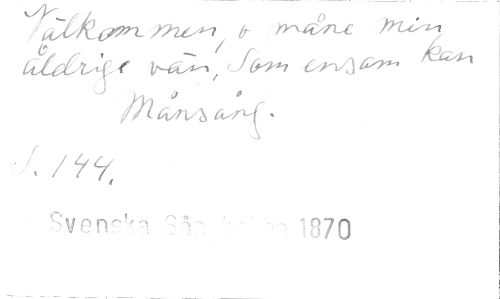 Välkommen, o måne min
åldrige vän, Som ensam kan
Månsång.
S. 144.
Svenska 1870